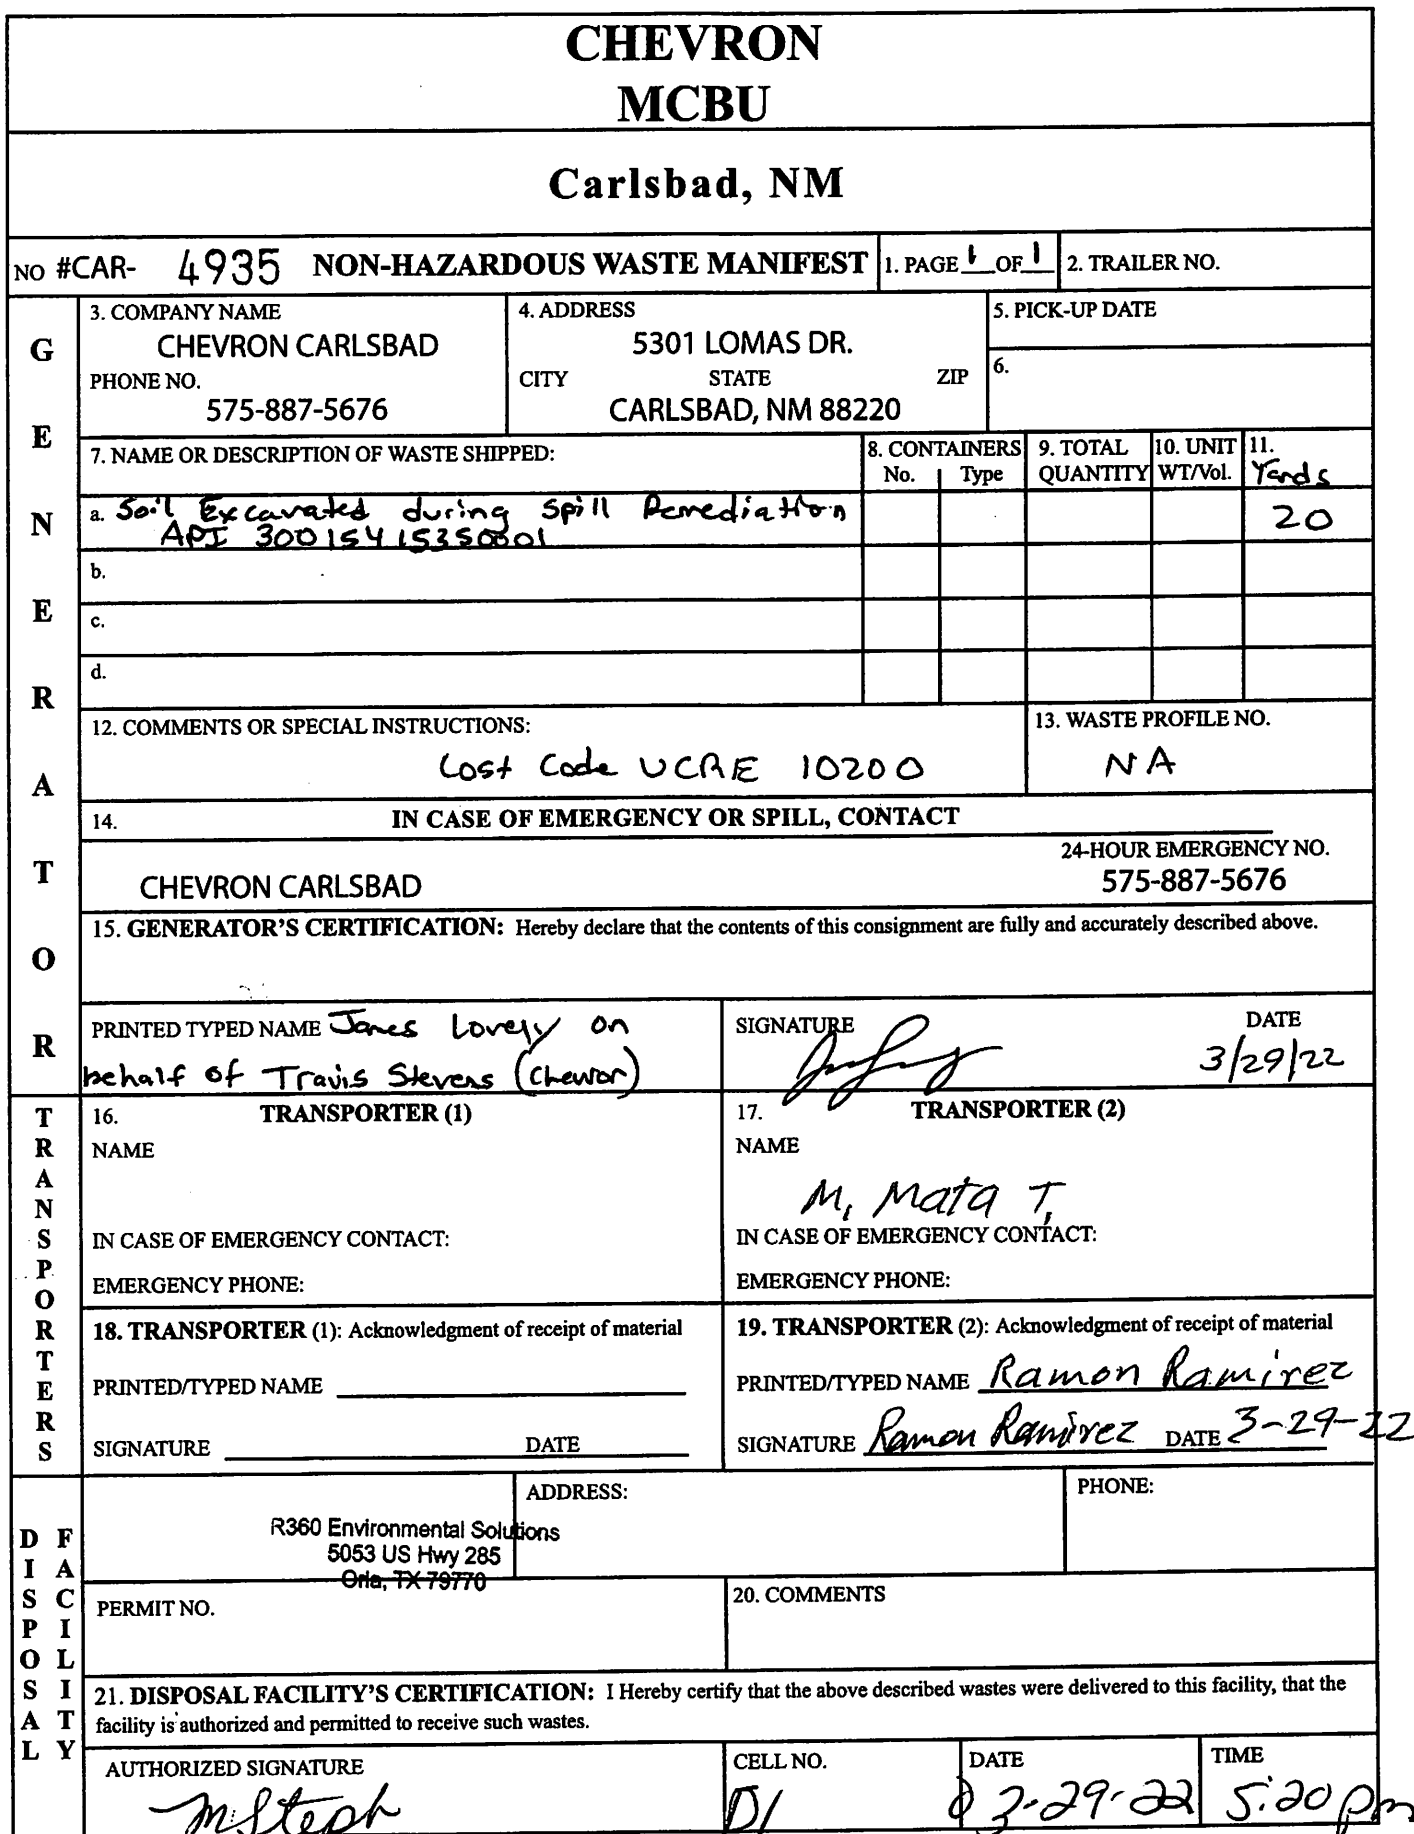 CHEVRON
MCBU
Carlsbad, NM
NO #CAR- 4935 NON-HAZARDOUS WASTE MANIFEST 1. PAGE 1 OF 1 2. TRAILER NO.
GENERATOR
3. COMPANY NAME
CHEVRON CARLSBAD
PHONE NO.
575-887-5676
4. ADDRESS
5301 LOMAS DR.
CITY STATE ZIP
CARLSBAD, NM 88220
5. PICK-UP DATE
6.
7. NAME OR DESCRIPTION OF WASTE SHIPPED:
8. CONTAINERS
No. Type
9. TOTAL
QUANTITY
10. UNIT
WT/Vol.
11.
Yards
a. Soil Excavated during Spill Remediation
API 30015415350001
20
b.
c.
d.
12. COMMENTS OR SPECIAL INSTRUCTIONS:
Cost Code UCRE 10200
13. WASTE PROFILE NO.
NA
14. IN CASE OF EMERGENCY OR SPILL, CONTACT
24-HOUR EMERGENCY NO.
CHEVRON CARLSBAD 575-887-5676
15. GENERATOR'S CERTIFICATION: Hereby declare that the contents of this consignment are fully and accurately described above.
PRINTED TYPED NAME James Lovely on
behalf of Travis Stevens (Chevron)
SIGNATURE
DATE
3/29/22
TRANSPORTERS
16. TRANSPORTER (1)
NAME
IN CASE OF EMERGENCY CONTACT:
EMERGENCY PHONE:
17. TRANSPORTER (2)
NAME
M. Mata T.
IN CASE OF EMERGENCY CONTACT:
EMERGENCY PHONE:
18. TRANSPORTER (1): Acknowledgment of receipt of material
PRINTED/TYPED NAME
SIGNATURE DATE
19. TRANSPORTER (2): Acknowledgment of receipt of material
PRINTED/TYPED NAME Ramon Ramirez
SIGNATURE Ramon Ramirez DATE 3-29-22
DISPOSAL FACILITY
R360 Environmental Solutions
5053 US Hwy 285
Orla, TX 79770
ADDRESS:
PHONE:
PERMIT NO.
20. COMMENTS
21. DISPOSAL FACILITY'S CERTIFICATION: I Hereby certify that the above described wastes were delivered to this facility, that the
facility is authorized and permitted to receive such wastes.
AUTHORIZED SIGNATURE
M Steph
CELL NO.
D1
DATE
3-29-22
TIME
5:20 pm